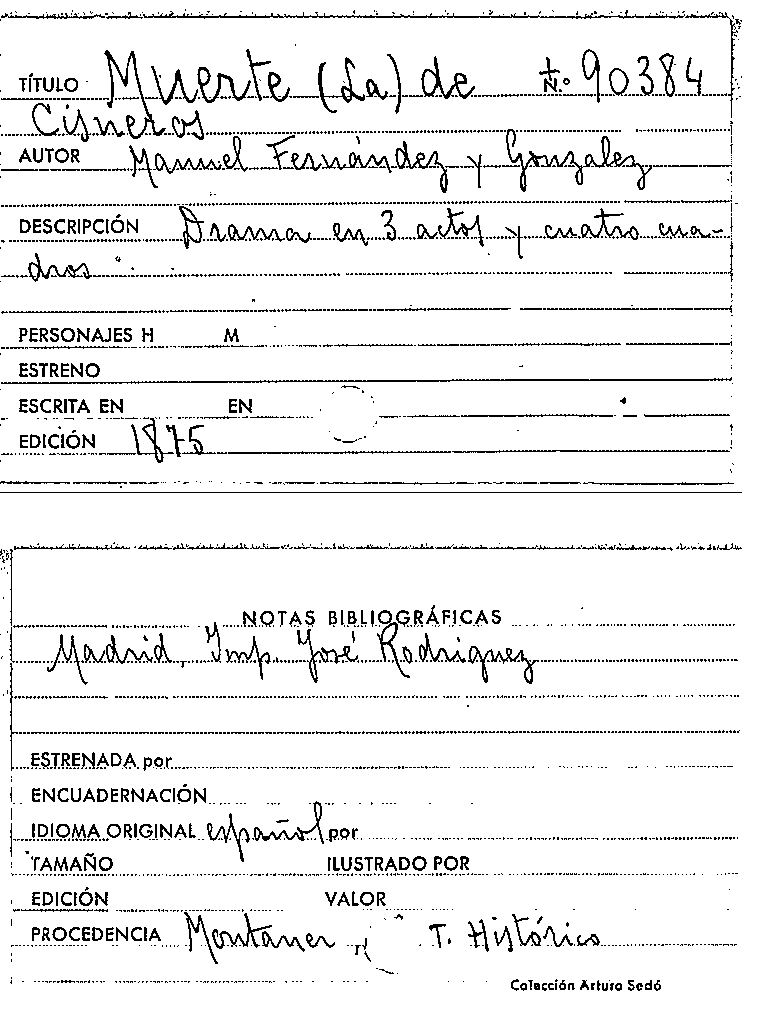 TÍTULO Muerte (La) de N.º 90384
Cisneros
AUTOR Manuel Fernández y Gonzalez
DESCRIPCIÓN Drama en 3 actos y cuatro cua-
dros
PERSONAJES H M
ESTRENO
ESCRITA EN EN
EDICIÓN 1875
NOTAS BIBLIOGRÁFICAS
Madrid, Imp. José Rodriguez
ESTRENADA por
ENCUADERNACIÓN
IDIOMA ORIGINAL español por
TAMAÑO ILUSTRADO POR
EDICIÓN VALOR
PROCEDENCIA Montaner T. Histórico
Colección Arturo Sedó